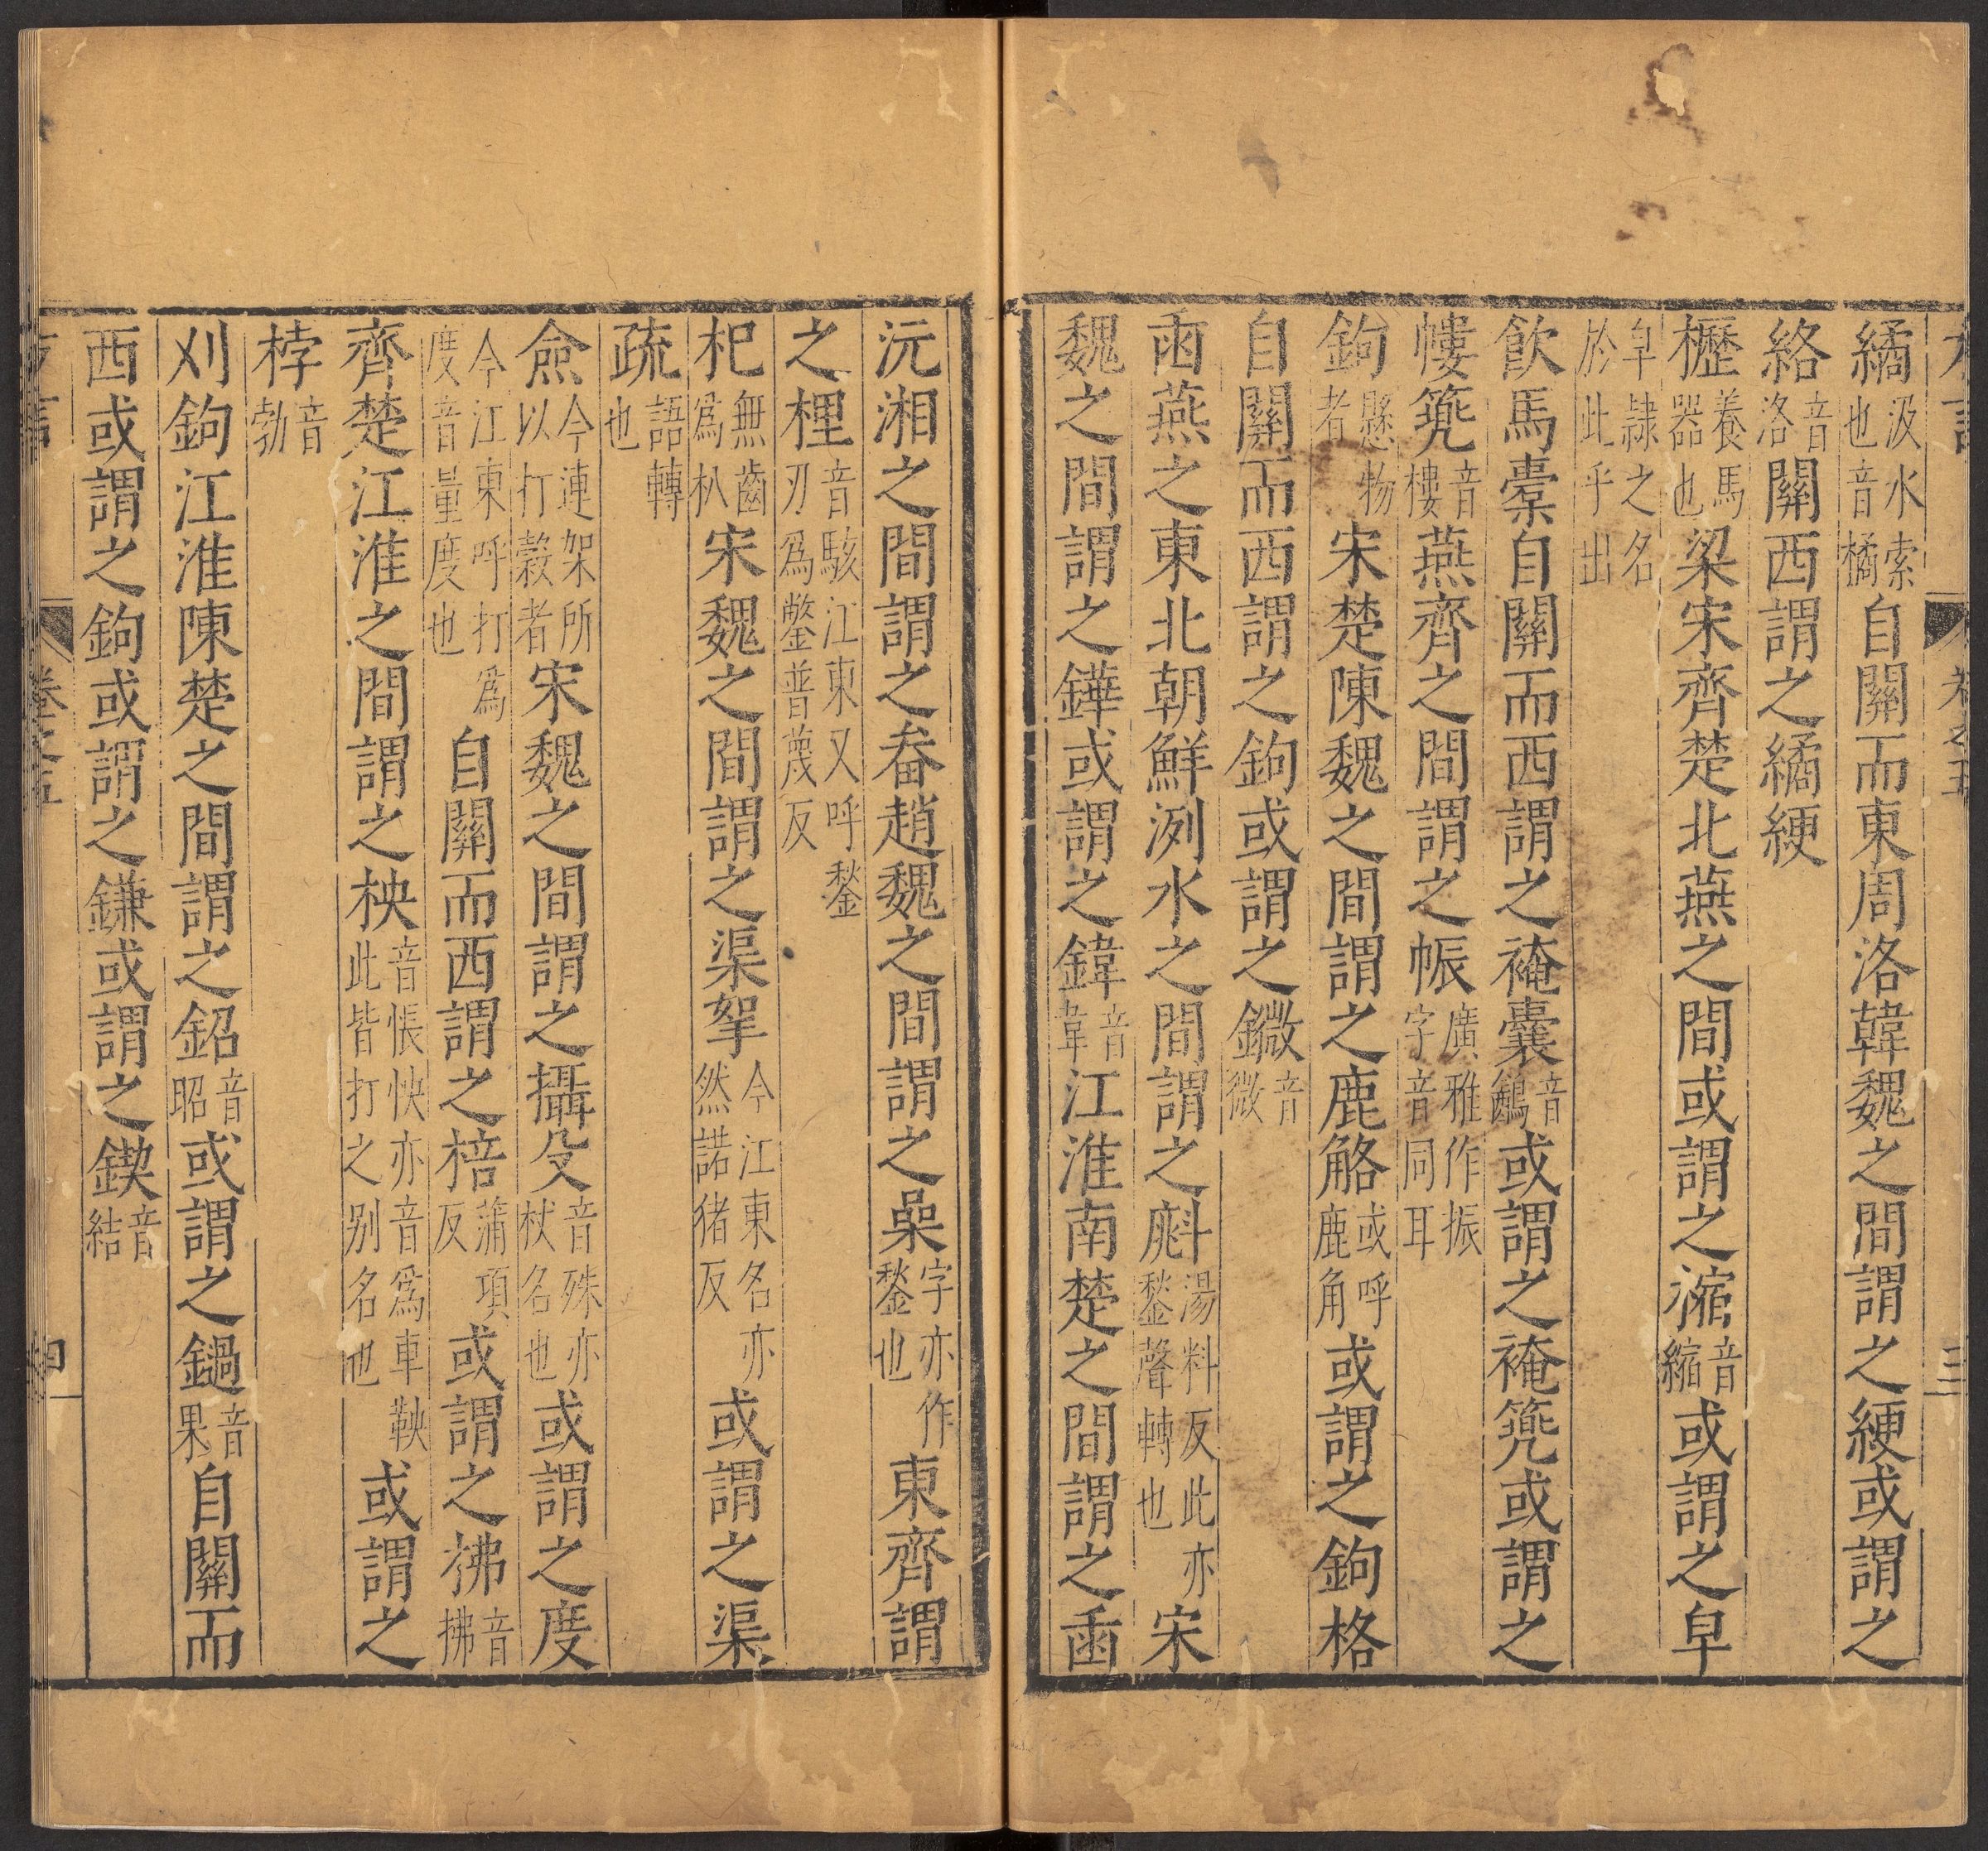 繘汲水索也音橘自關而東周洛韓魏之間謂之綆或謂之
絡音洛關西謂之繘綆
櫪養馬器也梁宋齊楚北燕之間或謂之𣖊音縮或謂之皁
皁隸之名於此乎出
飲馬橐自關而西謂之裺囊音鵪或謂之裺篼或謂之
㡞篼音樓燕齊之間謂之帳廣雅作振字音同耳
鉤懸物者宋楚陳魏之間謂之鹿觡或呼鹿角或謂之鉤格
自關而西謂之鉤或謂之鐖音微
臿燕之東北朝鮮洌水之間謂之𣂁湯料反此亦鍫聲轉也宋
魏之間謂之鏵或謂之鍏音韋江淮南楚之間謂之臿
沅湘之間謂之畚趙魏之間謂之喿字亦作鍫也東齊謂
之梩音駭江東又呼鍫刃為鐅普蔑反
杷無齒為朳宋魏之間謂之渠挐今江東名亦然諾猪反或謂之渠
疏語轉也
僉今連架所以打穀者宋魏之間謂之攝殳音殊亦杖名也或謂之度
今江東呼打為度音量度也自關而西謂之棓蒲項反或謂之柫音拂
齊楚江淮之間謂之柍音悵怏亦音為車鞅此皆打之别名也或謂之
桲音勃
刈鉤江淮陳楚之間謂之鉊音昭或謂之鐹音果自關而
西或謂之鉤或謂之鎌或謂之鍥音結
卷之五
四